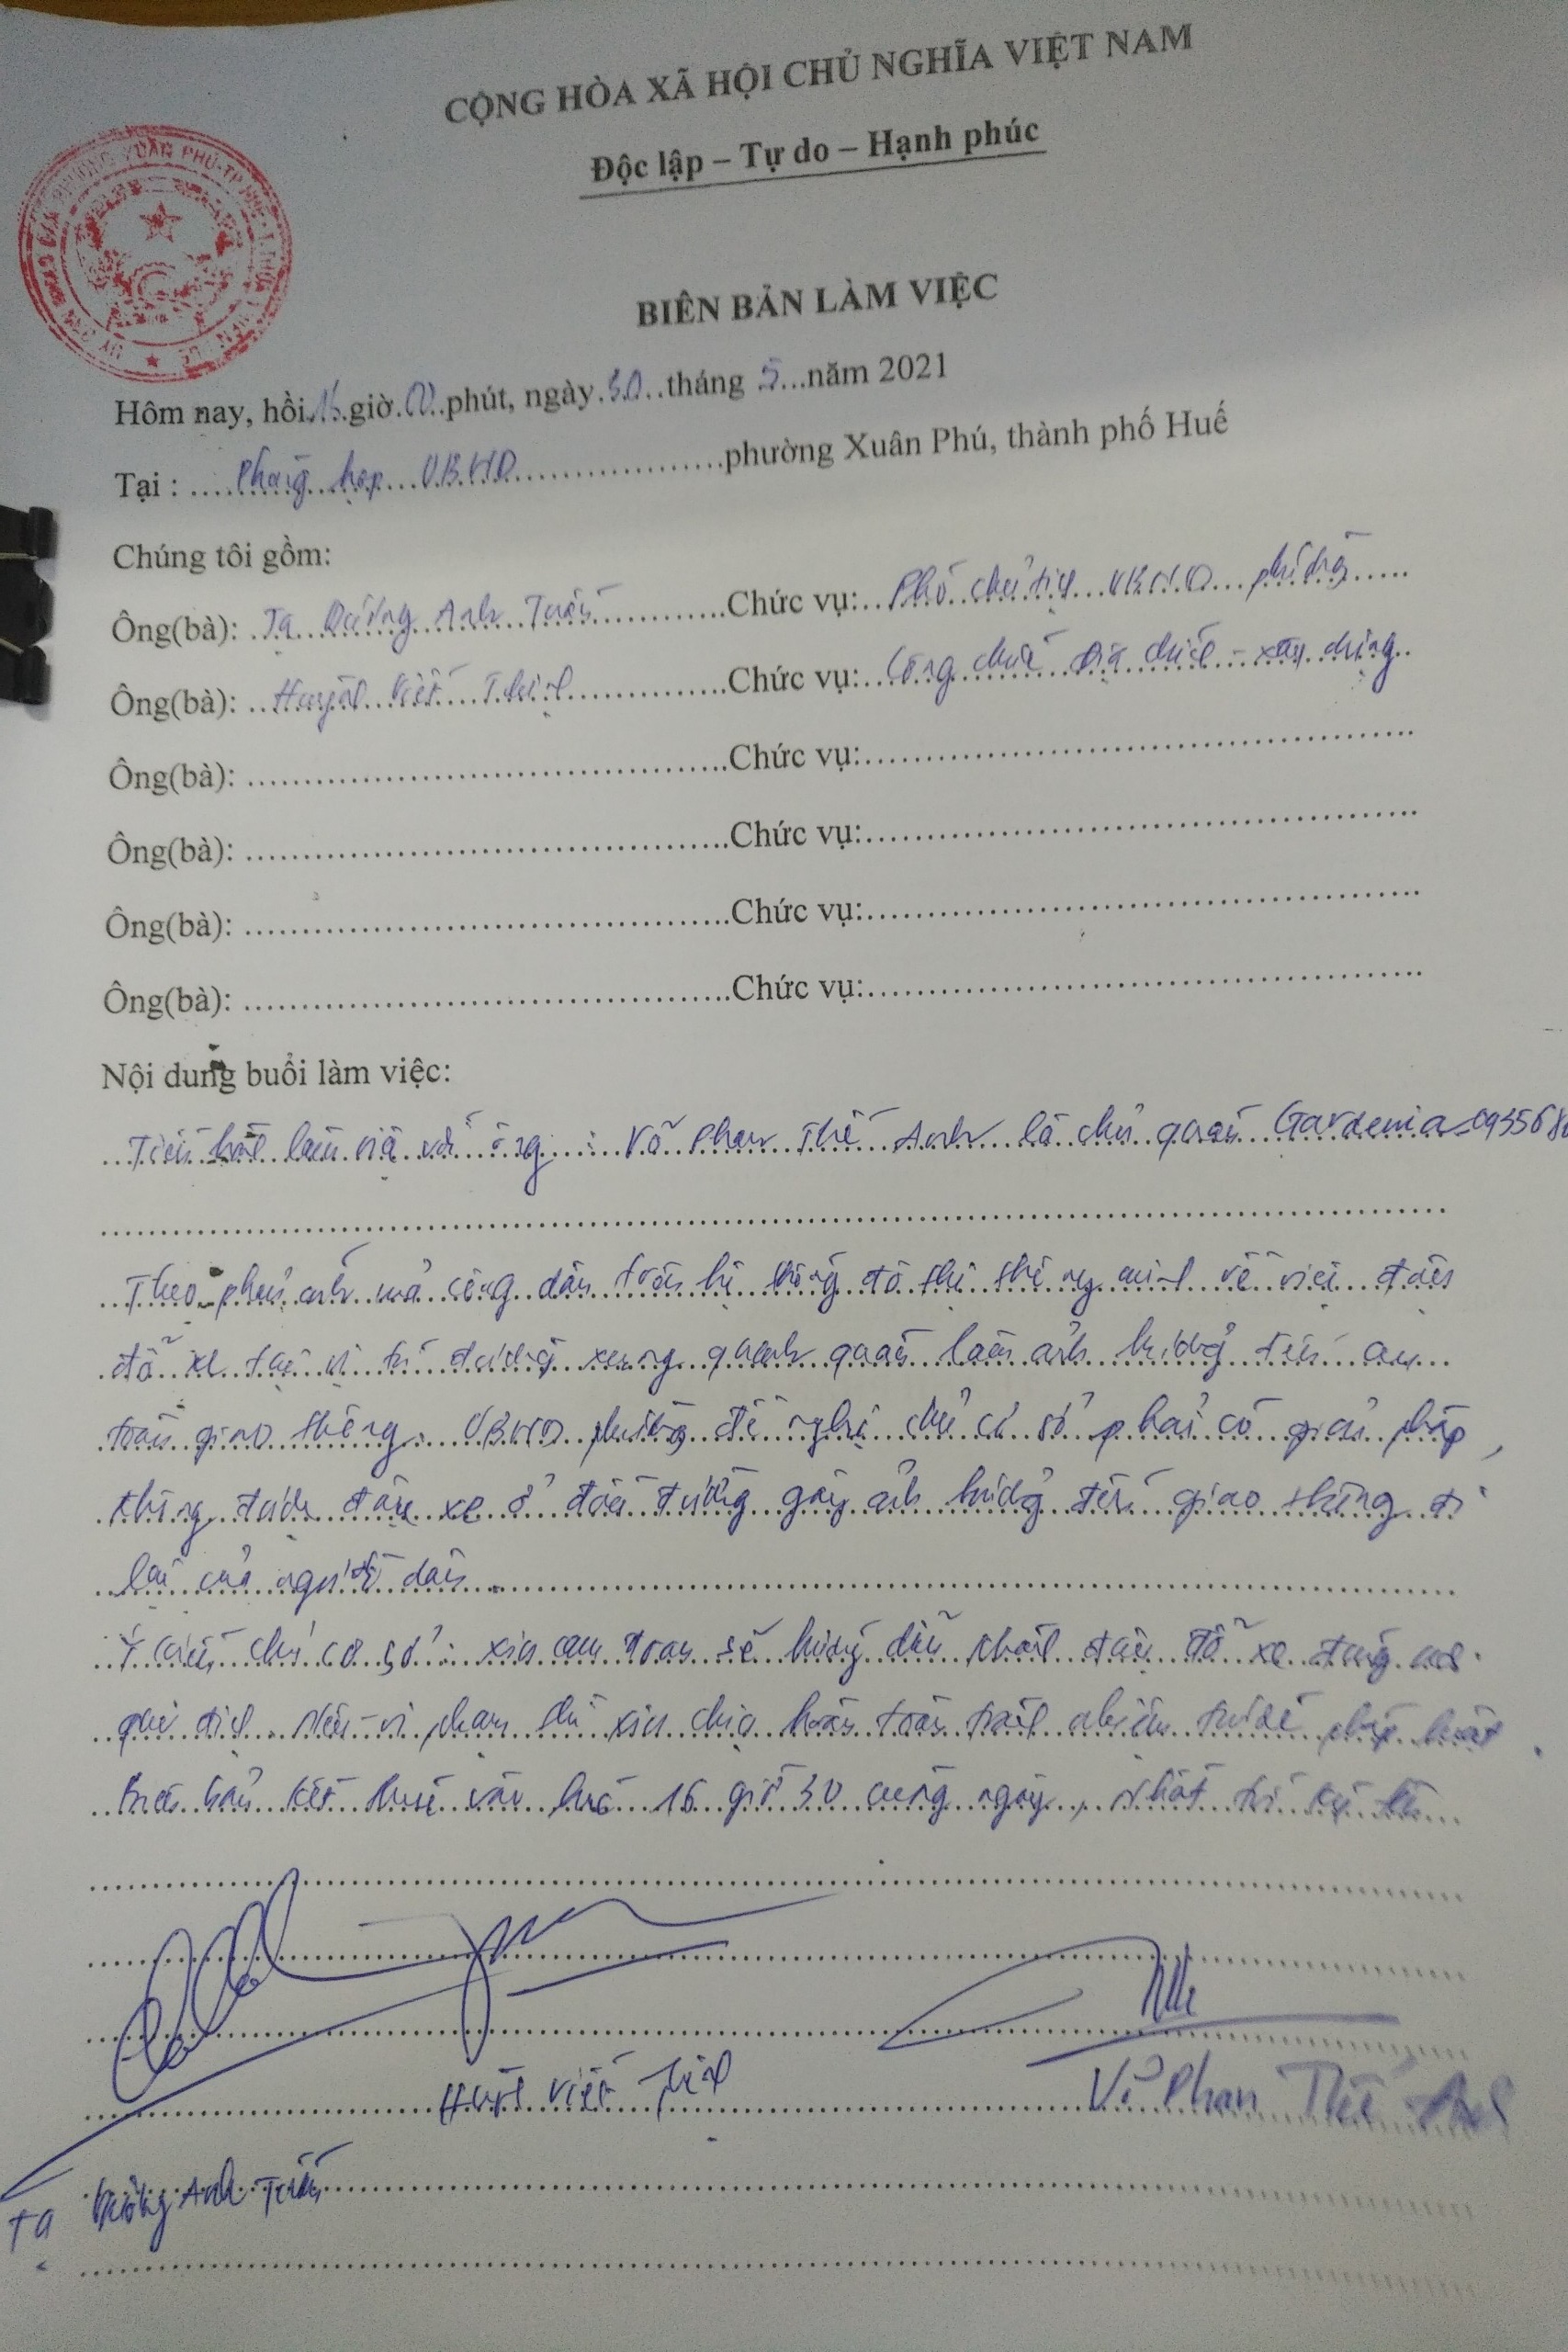 CỘNG HÒA XÃ HỘI CHỦ NGHĨA VIỆT NAM
Độc lập – Tự do – Hạnh phúc
BIÊN BẢN LÀM VIỆC
Hôm nay, hồi giờ 00 phút, ngày 30 tháng 5 năm 2021
Tại : Phòng họp UBND phường Xuân Phú, thành phố Huế
Chúng tôi gồm:
Ông(bà): Tạ Dương Anh Tuấn Chức vụ: Phó chủ tịch UBND phường
Ông(bà): Huỳnh Viết Thịnh Chức vụ: Công chức địa chính - xây dựng
Ông(bà): Chức vụ:
Ông(bà): Chức vụ:
Ông(bà): Chức vụ:
Ông(bà): Chức vụ:
Nội dung buổi làm việc:
Tiến hành làm việc với ông : Võ Phan Thế Anh là chủ quán Gardenia 093568
Theo phản ánh của công dân trên hệ thống đô thị thông minh về việc đậu
đỗ xe tại vị trí đường xung quanh quán làm ảnh hưởng đến an
toàn giao thông. UBND phường đề nghị chủ cơ sở phải có giải pháp,
không được đậu xe ở đường gây ảnh hưởng đến giao thông đi
lại của người dân.
Ý kiến chủ cơ sở: xin cam đoan sẽ hướng dẫn khách đậu đỗ xe đúng
quy định. Nếu vi phạm thì xin chịu hoàn toàn trách nhiệm trước pháp luật.
Biên bản kết thúc vào lúc 16 giờ 30 cùng ngày, nhất trí ký tên
Huỳnh Viết Thịnh
Võ Phan Thế Anh
Tạ Dương Anh Tuấn